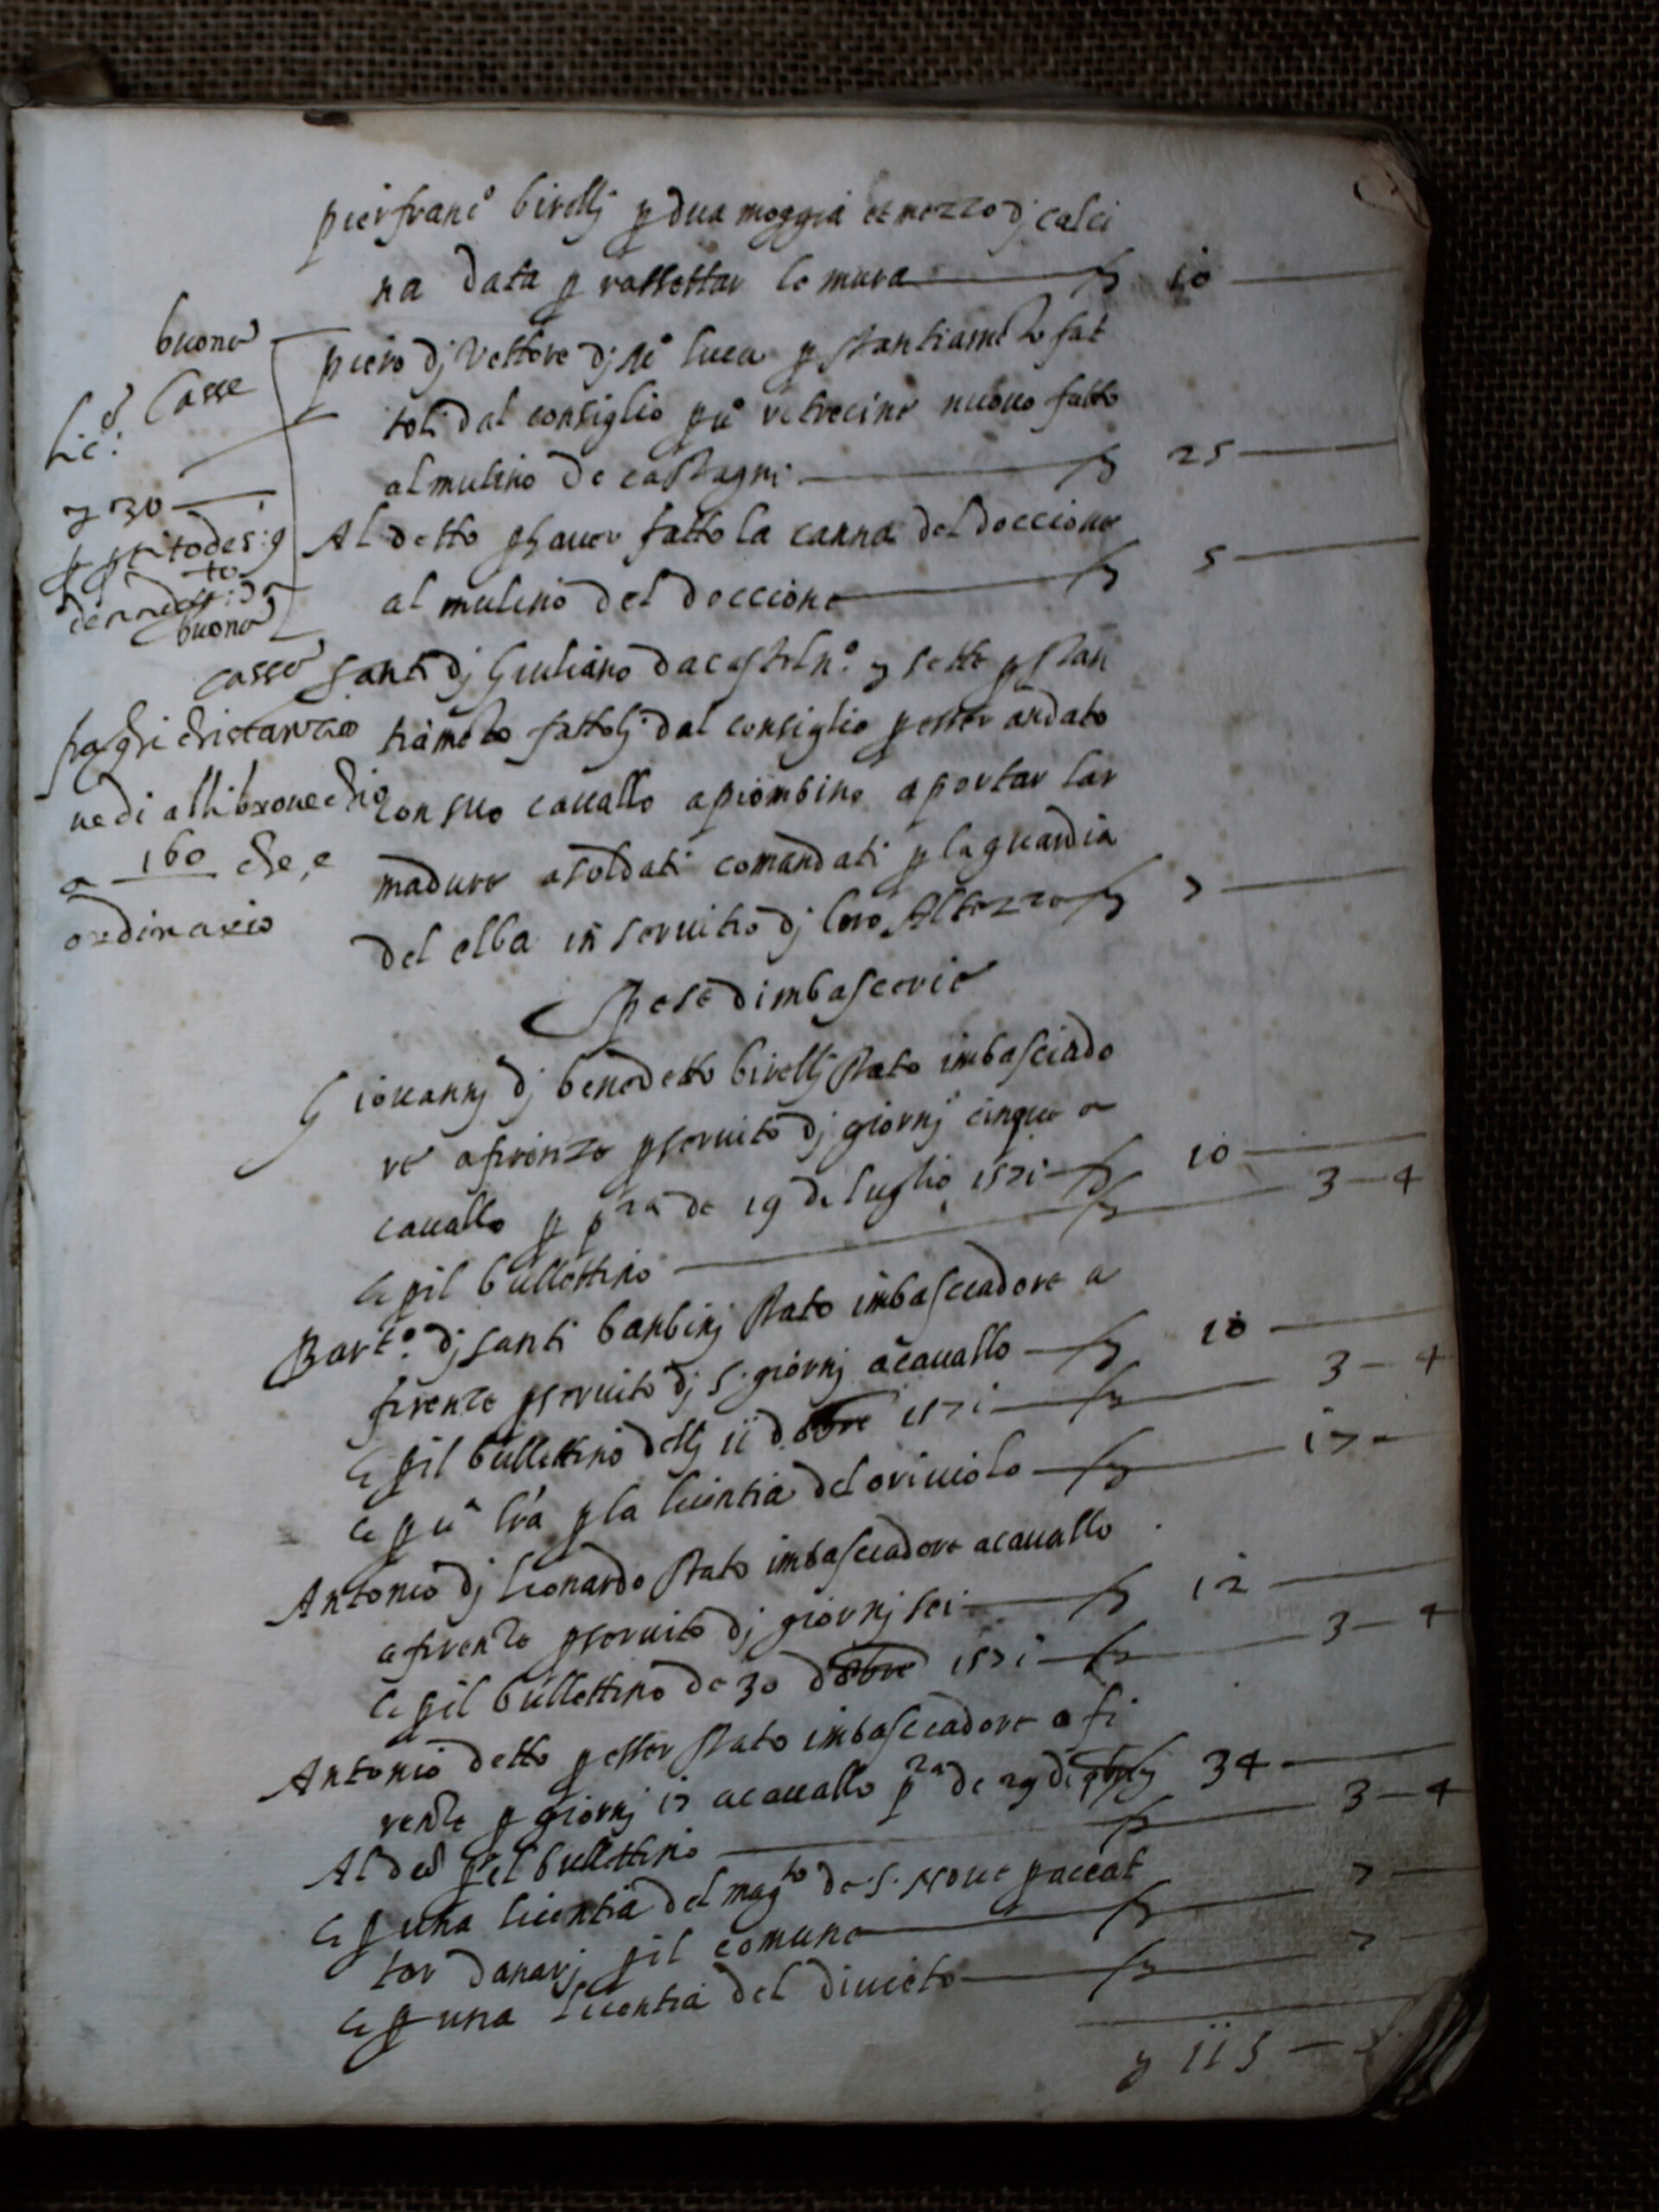 pierfranc° birellj p dua moggia et mezzo dj calci
na data p rassettar le mura ₰ 10 —
buono
et Casse
Lic:
piero dj Vettore dj luca p stantiamēto fat
toli dal consiglio p ū retrecine nuovo fatto
al mulino de castagni — ₰ 25 —
30 —
Al detto p haver fatto la canna del doccione
al mulino del doccione — ₰ 5 —
buono
casso
santi dj Giuliano da casteln°. sette p stan
tiamēto fattolj dal consiglio p esser andato
con suo cavallo a piombino a portar lar
madure a soldati comandati p la guardia
del elba in servitio dj loro Altezze ₰ 7 —
vedi al libro vechio
a 160 che, e
ordinario
Spese dimbascerie
Giovannj dj benedetto birellj stato imbasciado
re a firenze p servito dj giornj cinque a
cavallo p pza de 19 di luglio 1571 — ₰ 10 —
E p il bullettino — ₰ — 3 — 4
Bart°. dj santi banbinj stato imbasciadore a
firenze p servito dj 5. giornj a cavallo — ₰ 10 —
E p il bullettino dellj 11 d 8bre 1571 — ₰ — 3 — 4
E p ūa lrā p la licentia del oriuolo — ₰ — 17 —
Antonio dj lionardo stato imbasciadore a cavallo
a firenze p servito dj giornj sei — ₰ 12 —
E p il bullettino de 30 d 8bre 1571 — ₰ — 3 — 4
Antonio detto p esser stato imbasciadore a fi
renze p giornj 17 a cavallo pza de 29 di ₰ 34 —
Al deto p el bullettino — ₰ — 3 — 4
E p una licentia del magto de .s. nove p accat
tar danarj p il comune — ₰ — 7 —
E p una licentia del divieto — ₰ — 7 —
115 —